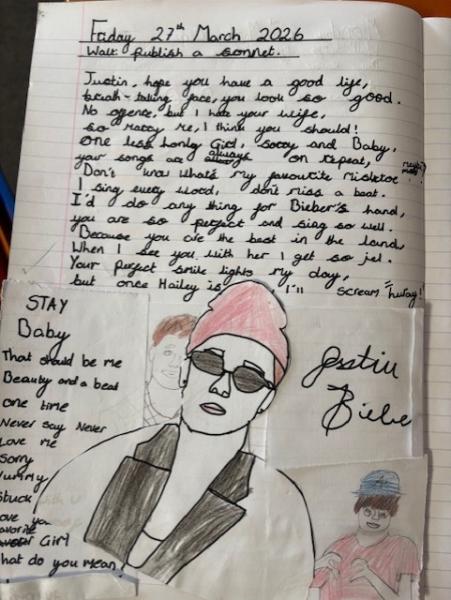 Friday 27th March 2026
Walt: Publish a sonnet.
Justin, hope you have a good life,
breath-taking face, you look so good.
No offence, but I hate your wife,
so marry me, I think you should!
One less lonely Girl, sorry and Baby,
your songs are always on repeat,
Don't know what's my favourite Mistletoe
I sing every word, don't miss a beat.
I'd do any thing for Bieber's hand,
you are so perfect and sing so well.
Because you are the best in the land
When I see you with her I get so jel.
Your perfect smile lights my day,
but once Hailey is I'll scream "hurray!
STAY
Baby
That should be me
Beauty and a beat
one time
Never say Never
Love me
Sorry
Yummy
Stuck with u
Love you
Favorite
Girl
What do you mean
Justin
Biebe